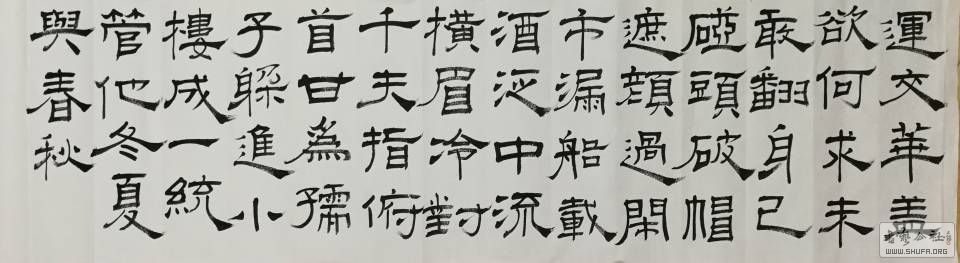 運交華盖
欲何求未
敢翻身已
碰頭破帽
遮顔過閙
市漏船載
酒泛中流
橫眉冷對
千夫指俯
首甘為孺
子躲進小
樓成一統
管他冬夏
與春秋
WWW.SHUFA.ORG